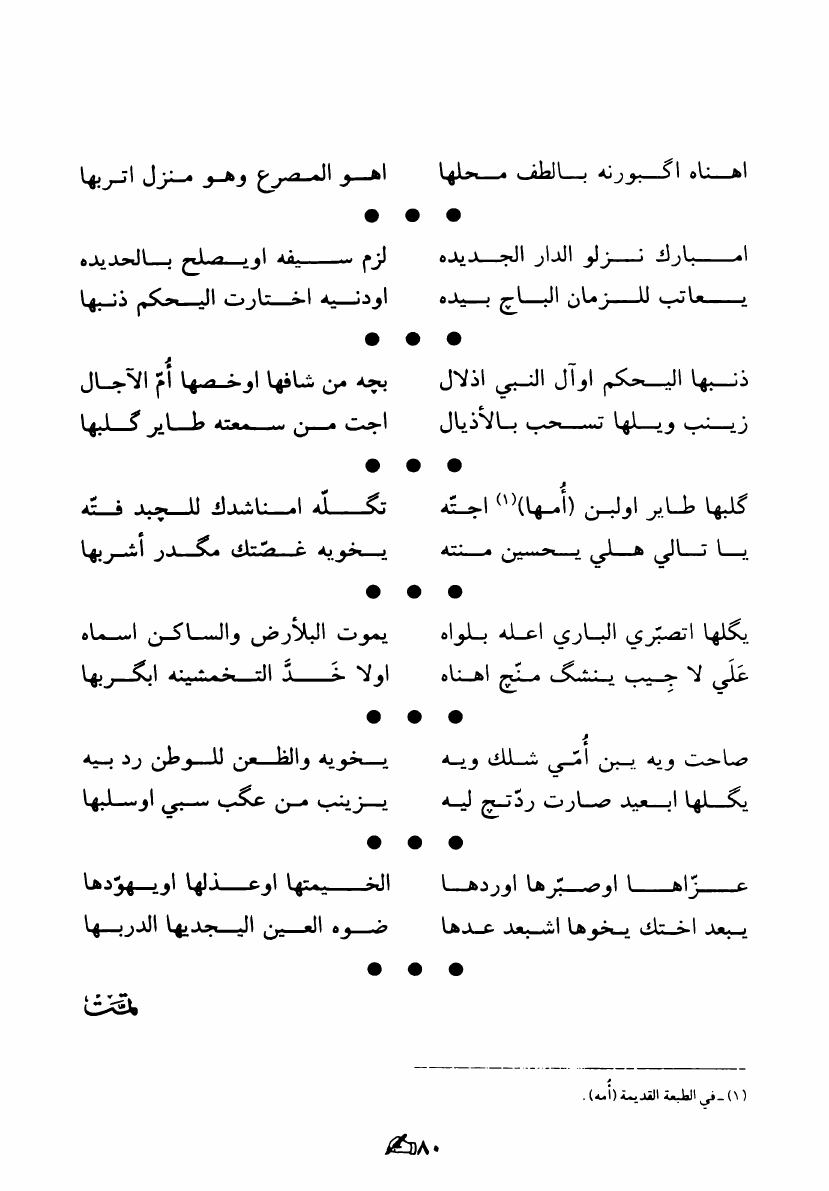 اهناه اگبورنه بالطف محلها اهو المصرع وهو منزل اتربها
● ● ●
امبارك نزلو الدار الجديده لزم سيفه اويصلح بالحديده
يعاتب للزمان الباچ بيده اودنيه اختارت اليحكم ذنبها
● ● ●
ذنبها اليحكم اوآل النبي اذلال بچه من شافها اوخصها أُمّ الآجال
زينب ويلها تسحب بالأذيال اجت من سمعته طاير گلبها
● ● ●
گلبها طاير اولبن (أُمها)(١) اجتّه تگلّه امناشدك للچبد فتّه
يا تالي هلي يحسين منته يخويه غصّتك مگدر أشربها
● ● ●
يگلها اتصبّري الباري اعله بلواه يموت البلأرض والساكن اسماه
عَلَي لا جِيب ينشگ منّچ اهناه اولا خَدَّ التخمشينه ابگربها
● ● ●
صاحت ويه يبن أُمّي شلك ويه يخويه والظعن للوطن رد بيه
يگلها ابعيد صارت ردّتچ ليه يزينب من عگب سبي اوسلبها
● ● ●
عزّاها اوصبّرها اوردها الخيمتها اوعذلها اويهوّدها
يبعد اختك يخوها اشبعد عدها ضوه العين اليجديها الدربها
● ● ●
تمّت
(١) ـ في الطبعة القديمة (أُمه) .
٨٠